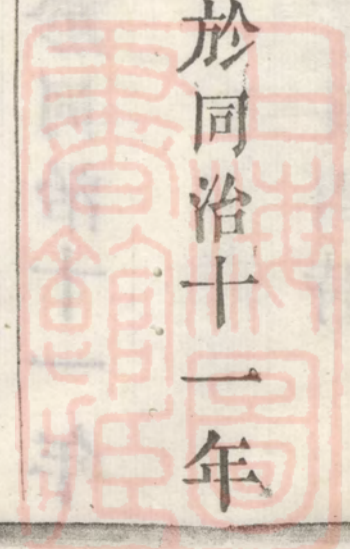 於同治十一年